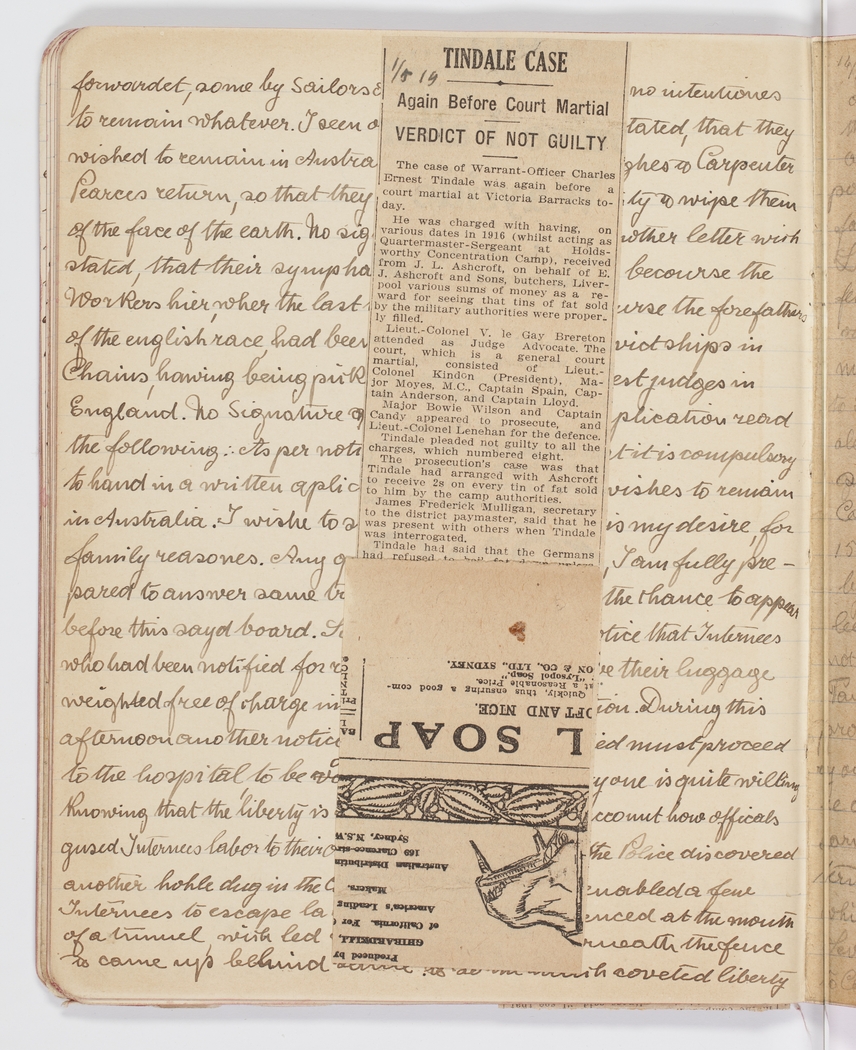 forwardet, some by Sailors
to remain whatever. I seen
wished to remain in Austra
Pearces return, so that they
of the face of the earth. No sig
stated, that their sympha
Workers hier, wher the last
of the english race had been
Chains, having being pick
England. No Signature
the following:. As per noti
to hand in a written aplic
in Australia. I wishe to s
family reasones. Any
pared to answer same b
before this sayd board.
who had been notified for r
weighted free of charge in
afternoon another notic
to the hospital, to be
Knowing that the liberty is
gused Internees labor to their o
another hohle dug in the C
Internees to escape la
of a tunnel, wish led
to came up behind
1/5 19
TINDALE CASE
Again Before Court Martial
VERDICT OF NOT GUILTY
The case of Warrant-Officer Charles
Ernest Tindale was again before a
court martial at Victoria Barracks to-
day.
He was charged with having, on
various dates in 1916 (whilst acting as
Quartermaster-Sergeant at Holds-
worthy Concentration Camp), received
from J. L. Ashcroft, on behalf of E.
J. Ashcroft and Sons, butchers, Liver-
pool various sums of money as a re-
ward for seeing that tins of fat sold
by the military authorities were proper-
ly filled.
Lieut.-Colonel V. le Gay Brereton
attended as Judge Advocate. The
court, which is a general court
martial, consisted of Lieut.-
Colonel Kindon (President), Ma-
jor Moyes, M.C., Captain Spain, Cap-
tain Anderson, and Captain Lloyd.
Major Bowie Wilson and Captain
Candy appeared to prosecute, and
Lieut.-Colonel Lenehan for the defence.
Tindale pleaded not guilty to all the
charges, which numbered eight.
The prosecution's case was that
Tindale had arranged with Ashcroft
to receive 2s on every tin of fat sold
to him by the camp authorities.
James Frederick Mulligan, secretary
to the district paymaster, said that he
was present with others when Tindale
was interrogated.
Tindale had said that the Germans
had refused to
no intentiones
tated, that they
ghes to Carpenter
ty to wipe them
nother letter wish
becourse the
urse the forefathers
vict ships in
est judges in
plication read
t it is compulsory
wishes to remain
is my desire, for
I am fully pre-
the chance to appear
otice that Internees
ve their luggage
ion. During this
ied must proceed
y one is quite willing
ccount how officals
the Police discovered
enabled a few
enced at the mouth
rneath the fence
coveted liberty
L SOAP
OFT AND NICE.
Quickly, thus ensuring a good com-
at a Reasonable Price.
"Lysopol Soap."
ON & CO., LTD. SYDNEY.
Produced by
GHIRARDELLI,
of California. For
America's Leading
Makers.
Australian Distributin
169 Clarence-stree
Sydney, N.S.W.